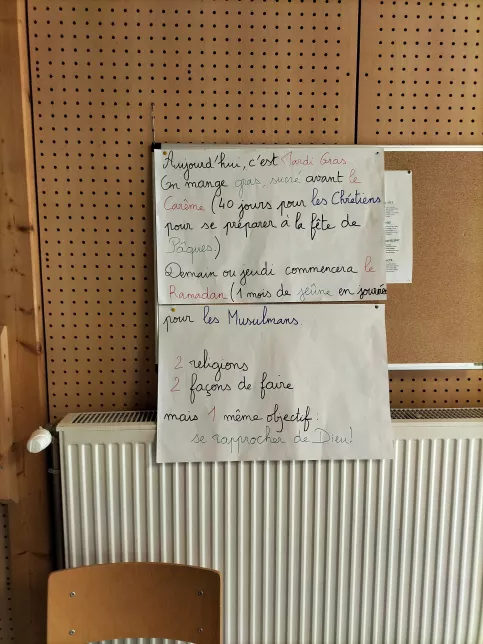 Aujourd'hui, c'est Mardi Gras
On mange gras, sucré avant le
Carême (40 jours pour les Chrétiens
pour se préparer à la fête de
Pâques)
Demain ou jeudi commencera le
Ramadan (1 mois de jeûne en journée
pour les Musulmans.
2 religions
2 façons de faire
mais 1 même objectif :
se rapprocher de Dieu!